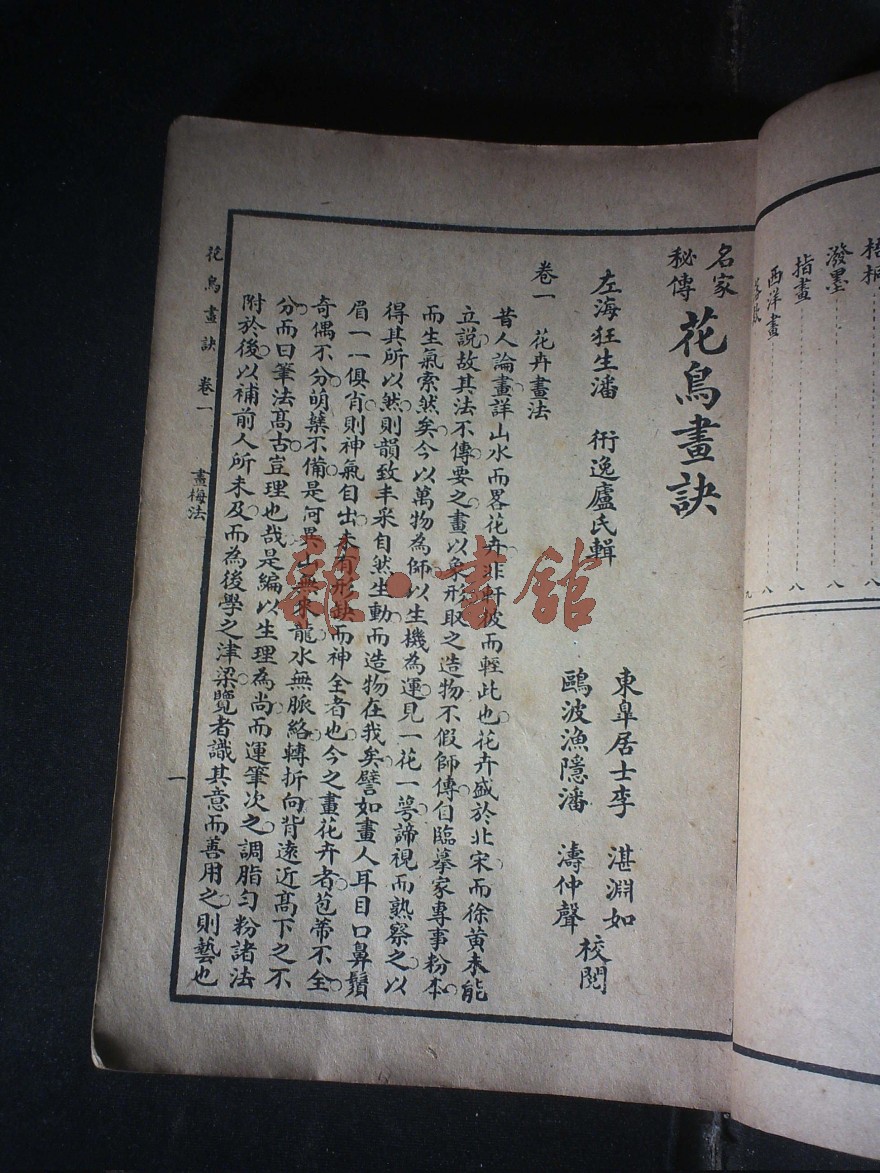 梧桐 八
潑墨 八
指畫 八
西洋畫 八
九
名家秘傳 花鳥畫訣
東皐居士李 湛淵如
左海狂生潘 衎逸廬氏輯
校閱
鷗波漁隱潘 濤仲聲
卷一 花卉畫法
昔人論畫詳山水而畧花卉非軒彼而輊此也花卉盛於北宋而徐黃未能
立說故其法不傳要之畫以象形取之造物不假師傳自臨摹家專事粉本
而生氣索然矣今以萬物為師以生機為運見一花一萼諦視而熟察之以
得其所以然則韻致丰采自然生動而造物在我矣譬如畫人耳目口鼻鬚
眉一一俱肖則神氣自出未有形缺而神全者也今之畫花卉者苞蒂不全
奇偶不分萌蘗不備是何異山無來龍水無脈絡轉折向背遠近高下之不
分而曰筆法高古豈理也哉是編以生理為尚而運筆次之調脂勻粉諸法
附於後以補前人所未及而為後學之津梁覽者識其意而善用之則藝也
花鳥畫訣 卷一 畫梅法 一
雜·書館